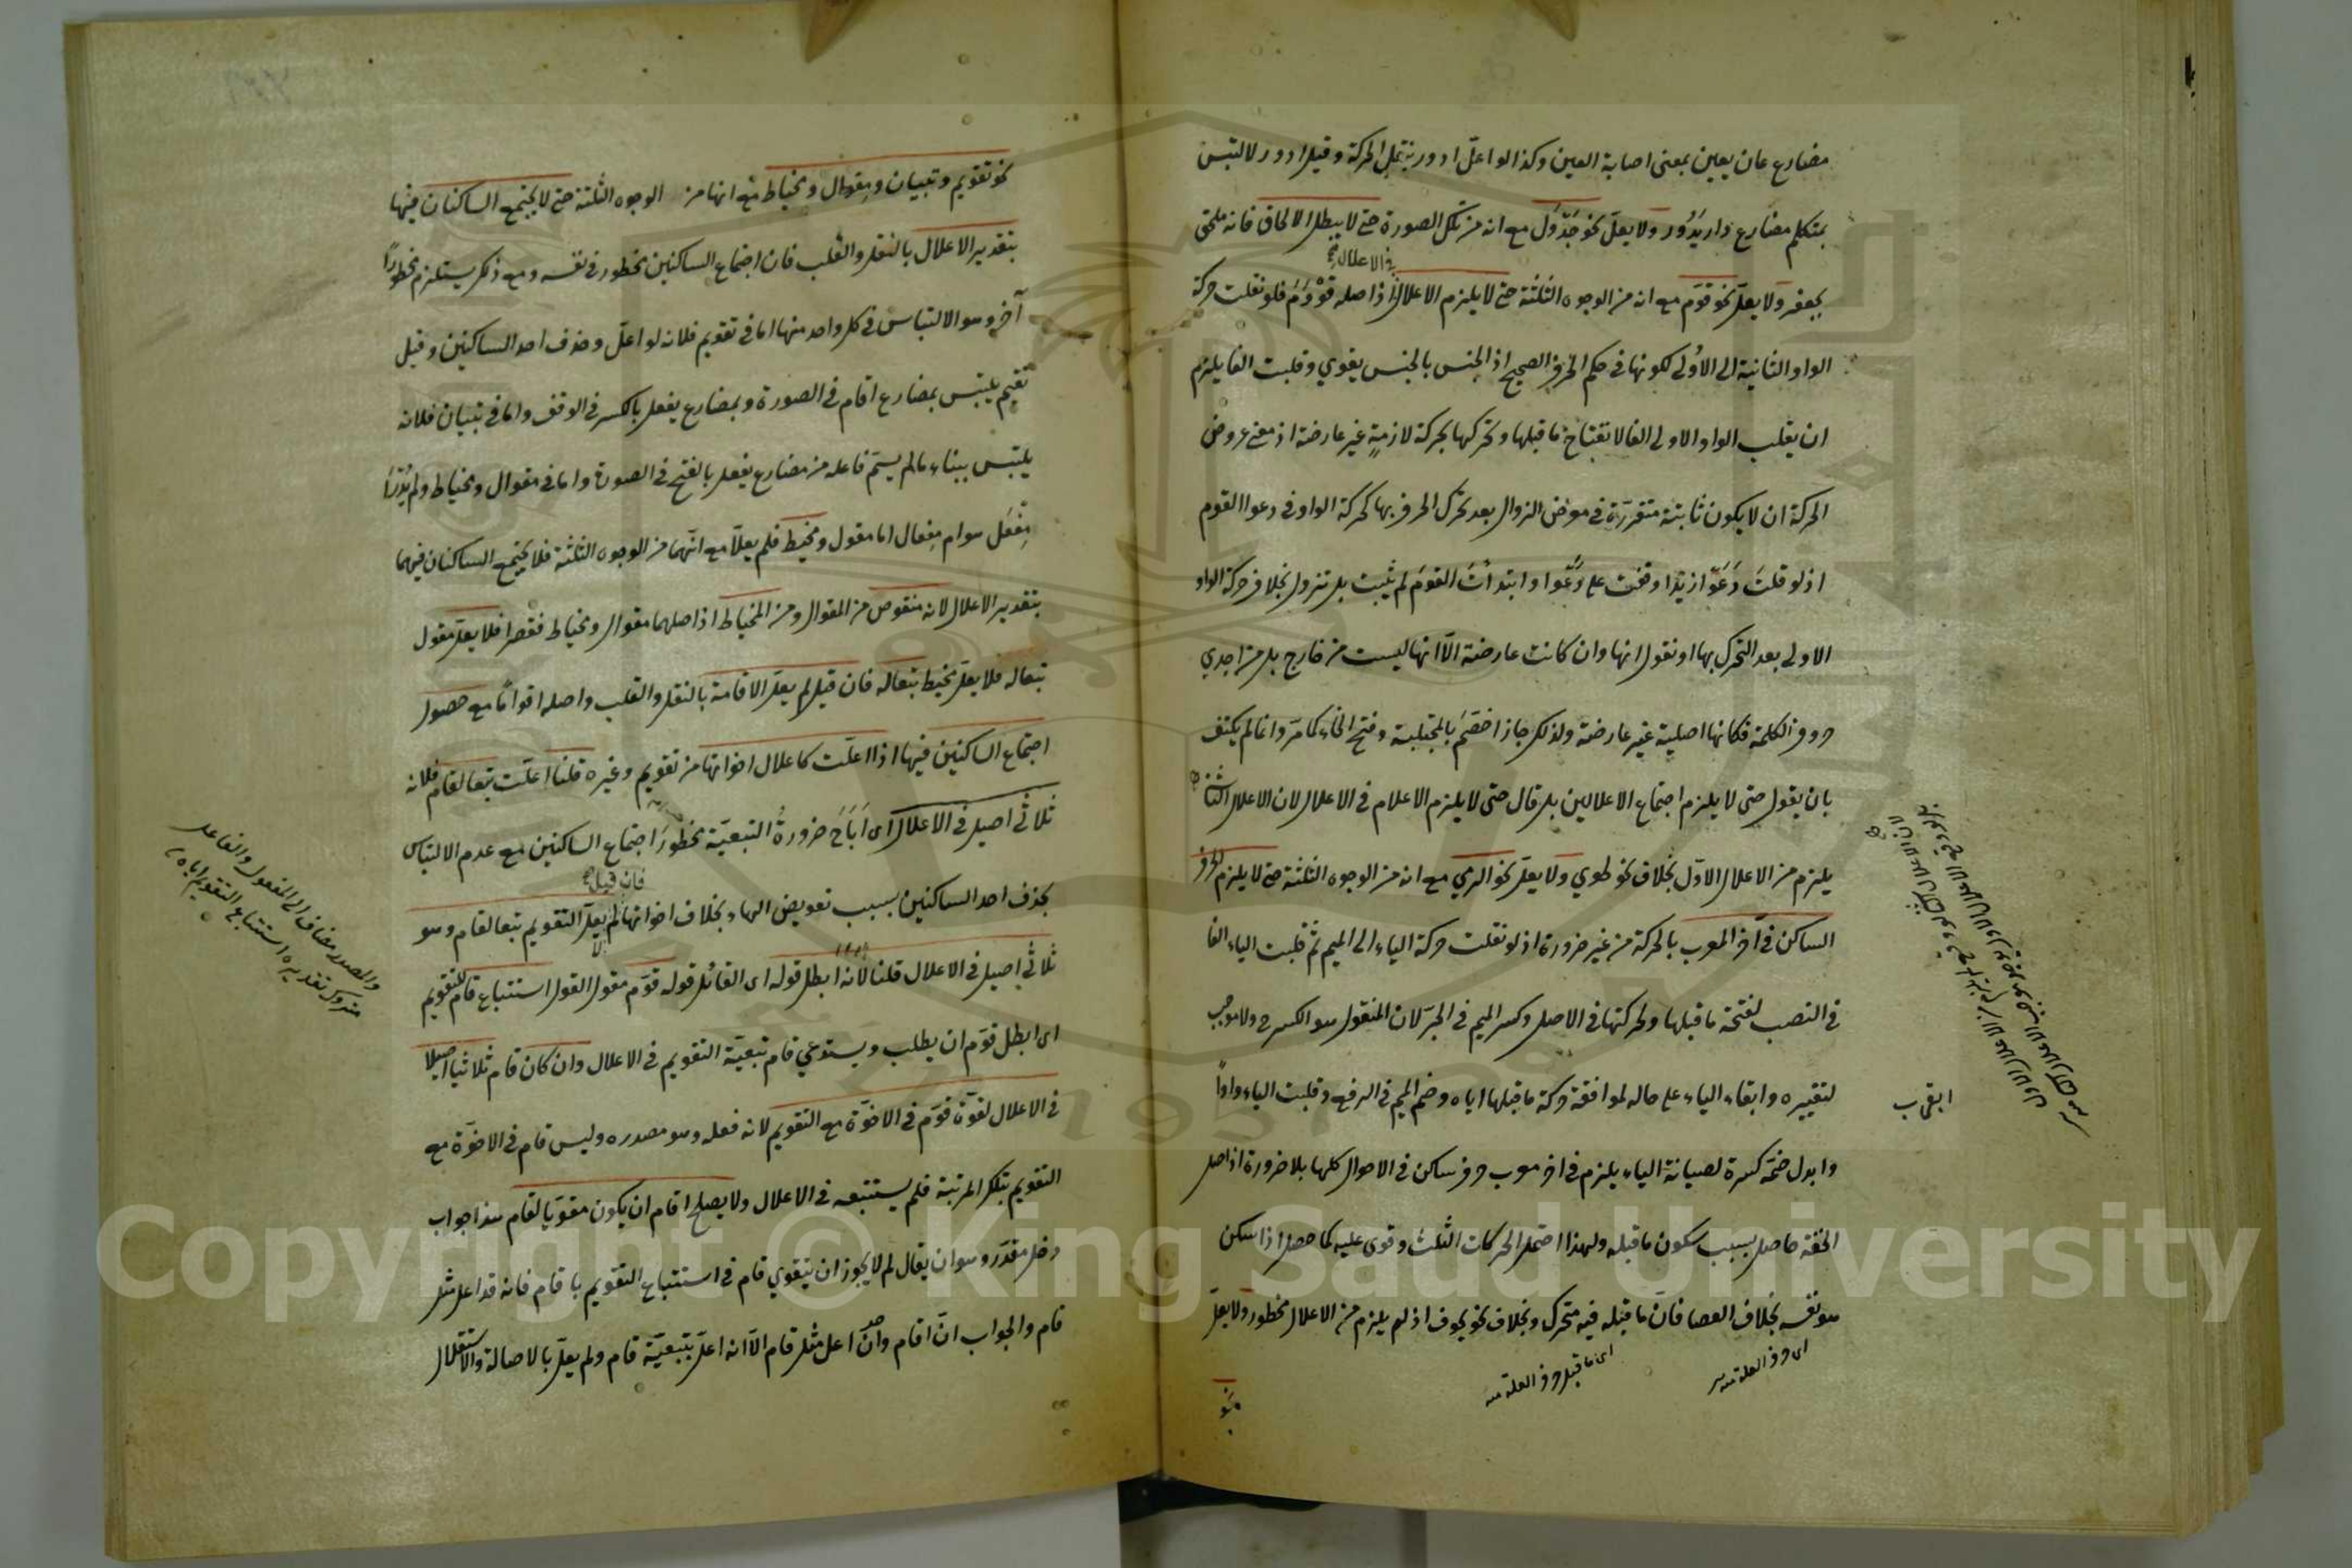 مضارع عان يعين بمعنى اصابة العين وكذا لو اعلّ ادور بنقل الحركة وقيل ادور لالتبس
بمتكلم مضارع دار يَدُور ولا يعلّ نحو جَدْوَل مع انه من تلك الصورة حتى لا يبطل الالحاق فانه ملحق
في الاعلال
بجعفر ولا يعلّ نحو قوّم مع انه من الوجوه الثلثة حتى لا يلزم الاعلال اذ اصله قَوْوَمَ فلو نقلت حركة
الواو الثانية الى الاُولى لكونها في حكم الحرف الصحيح اذ الجنس بالجنس يقوي وقلبت الفا يلزم
ان يقلب الواو الاولى الفا لانفتاح ما قبلها وتحركها بحركة لازمةٍ غير عارضة اذ معنى عروض
الحركة ان لا يكون ثابتة متقررة في معرض الزوال بعد تحرك الحرف بها كحركة الواو في دعوا القوم
اذ لو قلتَ دَعَوْا زيدا وقفت على دَعَوْا وابتدأتَ القومَ لم يثبت بل تزول بخلاف حركة الواو
الاولى بعد التحرك بها او نقول انها وان كانت عارضة الّا انها ليست من خارج بل من احدي
حروف الكلمة فكانها اصلية غير عارضة ولذلك جاز اخصّم بالمجتلبة وفتح الخاء كما مرّ وانما لم يكتف
بان يقول حتى لا يلزم اجتماع الاعلالين بل قال حتى لا يلزم الاعلام في الاعلال لان الاعلال الثاني
يلزم من الاعلال الاوّل بخلاف نحو طوي ولا يعلّ نحو الرمي مع انه من الوجوه الثلثة حتى لا يلزم الحرف
الساكن في آخر المعرب بالحركة من غير ضرورة اذ لو نقلت حركة الياء الى الميم ثم قلبت الياء الفا
في النصب لفتحة ما قبلها ولحركتها في الاصل وكسر الميم في الجرّ لان المنقول هو الكسر ح ولا موجب
لتغييره وابقاء الياء على حاله لموافقة حركة ما قبلها اياه وضم الميم في الرفع وقلبت الياء واواً
وابدل ضمّة كسرة لصيانة الياء يلزم في اخر معرب حرف ساكن في الاحوال كلها بلا ضرورة اذ اصل
الخفة حاصل بسبب سكون ما قبله ولهذا احتمل الحركات الثلث وقوى عليه كما حصل اذا سكن
هو نفسه بخلاف العصا فانّ ما قبله فيه متحرك وبخلاف نحو يخوف اذ لم يلزم من الاعلال محظور ولا يعلّ
اى حرف العلة منه
اى ما قبل حرف العلة منه
نحو
نحو تقويم وتبيان ومقوال ومخياط مع انها من الوجوه الثلثة حتى لا يجتمع الساكنان فيها
بتقدير الاعلال بالنقل والقلب فان اجتماع الساكنين محظور في نفسه ومع ذلك يستلزم محظوراً
آخر وهو الالتباس في كل واحد منها اما في تقويم فلانه لو اعلّ وحذف احد الساكنين وقيل
تقيم يلتبس بمضارع اقام في الصورة وبمضارع يفعل بالكسر في الوقف واما في تبيان فلانه
يلتبس ببناء ما لم يسمّ فاعله من مضارع يفعل بالفتح في الصورة واما في مقوال ومخياط ولم يُدْرَ أ
مِفْعَل هو ام مِفعال اما مقول ومخيط فلم يعلّا مع انّهما من الوجوه الثلثة فلا يجتمع الساكنان فيهما
بتقدير الاعلال لانه منقوص من المقوال ومن المخياط اذ اصلهما مقوال ومخياط فقصرا فلا يعلّ مقول
تبعا له فلا يعلّ مخيط تبعا له فان قيل لم يعلّ الاقامة بالنقل والقلب واصله اقوامًا مع حصول
اجتماع الساكنين فيها اذا اعلّت كاعلال اخواتها من تقويم وغيره قلنا اعلّت تبعا لقام فلانه
ثلاثي اصيل في الاعلال اى اَبَاحَ ضرورةُ التبعيّة محظورَ اجتماع الساكنين مع عدم الالتباس
فان قيل
بحذف احد الساكنين بسبب تعويض الهاء بخلاف اخواتها لم لا يعلّ التقويم تبعا لقام وهو
ثلاثي اصيل في الاعلال قلنا لانه ابطل قوله اى القائل قوله قوّم مقول القول استتباع قام للتقويم
اى ابطل قوّم ان يطلب ويستدعي قام تبعيّة التقويم في الاعلال وان كان قام ثلاثيا اصيلا
في الاعلال لقوّة قوّم في الاخوّة مع التقويم لانه فعله وهو مصدره وليس قام في الاخوّة مع
التقويم بتلك المرتبة فلم يستتبعه في الاعلال ولا يصلح اقام ان يكون مقوّيا لقام هذا جواب
دخل مقدّر وهو ان يقال لم لا يجوز ان يتقوي قام في استتباع التقويم باقام فانه قد اعل مثل
قام والجواب انّ اقام وان اعل مثل قام الّا انه اعلّ بتبعيّة قام ولم يعلّ بالاصالة والاستقلال
والمصدر مضاف الى المفعول والفاعل
متروك تقديره استتباع التقويم اياه
Copyright © King Saud University